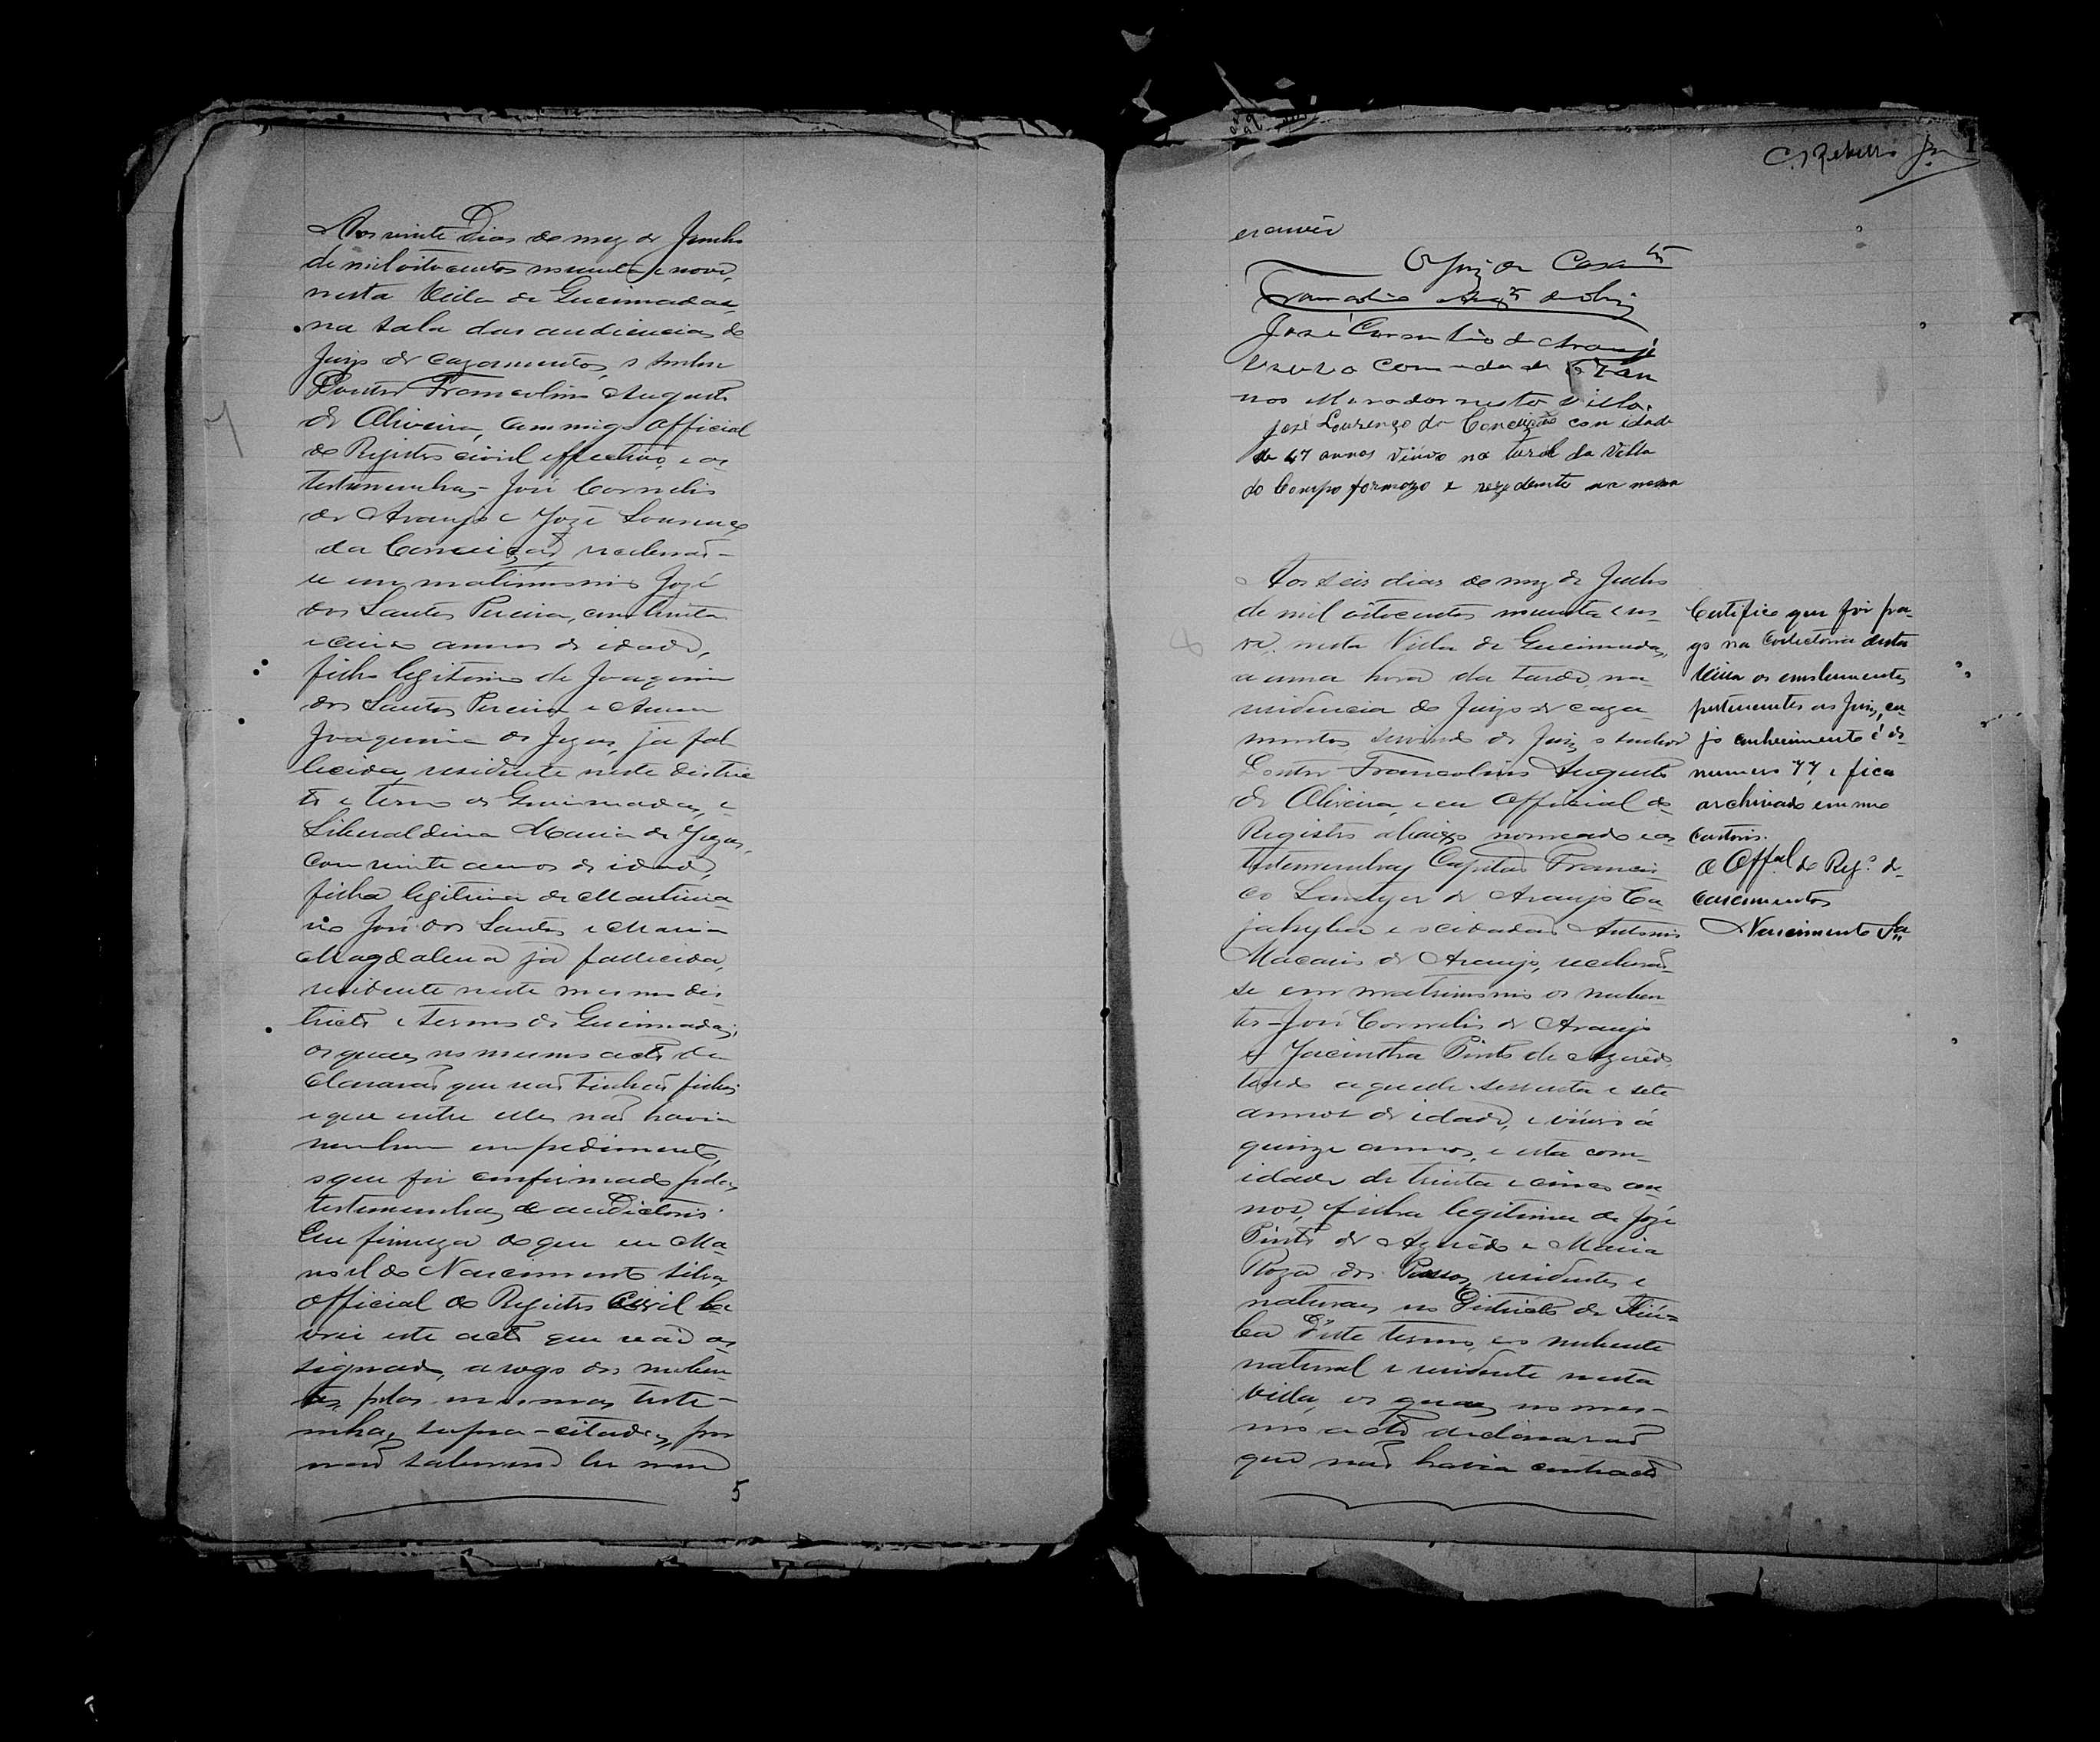 Aos vinte Dias do mez de Junho
de mil oitocentos noventa e nove,
nesta Villa de Queimadas,
na sala das audiencias do
Juizo de cazamentos, o senhor
Doutor Francolino Augusto
de Oliveira, commigo Official
do Registro civil effectivo, e as
testemunhas José Cornelio
de Araujo e Jozé Lourenço
da Conceição, receberão-
se em matrimonio Jozé
dos Santos Pereira, com trinta
e cinco annos de idade,
filho legitimo de Joaquim
dos Santos Pereira e Anna
Joaquina de Jezus, já fal
lecida, residente neste distric
to e termo de Queimadas, e
Liberaldina Maria de Jezus,
com vinte annos de idade,
filha legitima de Martinia
no José dos Santos e Maria
Magdalena já fallecida,
residente neste mesmo dis-
tricto e termo de Queimadas;
os quaes no mesmo acto de
clararão que não tinhão filhos
e que entre elles não havia
nenhum empedimento,
o que foi confirmado pelas
testemunhas e auditorio.
Em firmeza do que eu Ma-
noel do Nascimento Silva,
Official do Registro Civil la
vrei este acto que vai as
signado, a rogo dos nuben-
tes, pelas mesmas teste-
nhas supra-citadas, por
não saberem ler nem
5
7
C. Rebello Jor
escrever
O Juiz de Casamtos
Francolino Augto de Olivra
José Cornelio de Araujo
com idade de 67 an
nos Morador nesta Villa.
José Lourenço da Conceição com idade
de 47 annos viuvo natural da Villa
do Campo formozo e rezidente na mesma
8
Aos seis dias do mez de Julho
de mil oitocentos noventa e no-
ve, nesta Villa de Queimadas,
a uma hora da tarde, na
residencia do Juizo de caza-
mentos, servindo de Juiz o senhor
Doutor Francolino Augusto
de Oliveira, e eu Official do
Registro abaixo nomeado e as
testemunhas Capitão Francis-
co Lantyer de Araujo Ca-
jahyba e o cidadão Antonio
Macario de Araujo, receberão-
se em matrimonio os nuben
tes - José Cornelio de Araujo
e Jacintha Pinto de Azevêdo,
tendo aquelle sessenta e sete
annos de idade, e viuvo á
quinze annos, e esta com
idade de trinta e cinco an
nos, filha legitima de Jozé
Pinto de Azevêdo e Maria
Roza dos Passos, residentes e
naturaes no Districto de Itiú-
ba d'este termo, e o nubente
natural e residente nesta
villa, os quaes no mes-
mo acto declararão
que não havia contracto
Certifico que foi pa-
go na Collectoria desta
Villa os emolumentos
pertencentes ao Juiz, cu-
jo conhecimento é de
numero 77 e fica
archivado em meo
Cartorio.
O Offal do Rego de
casamentos
Nascimento Sa